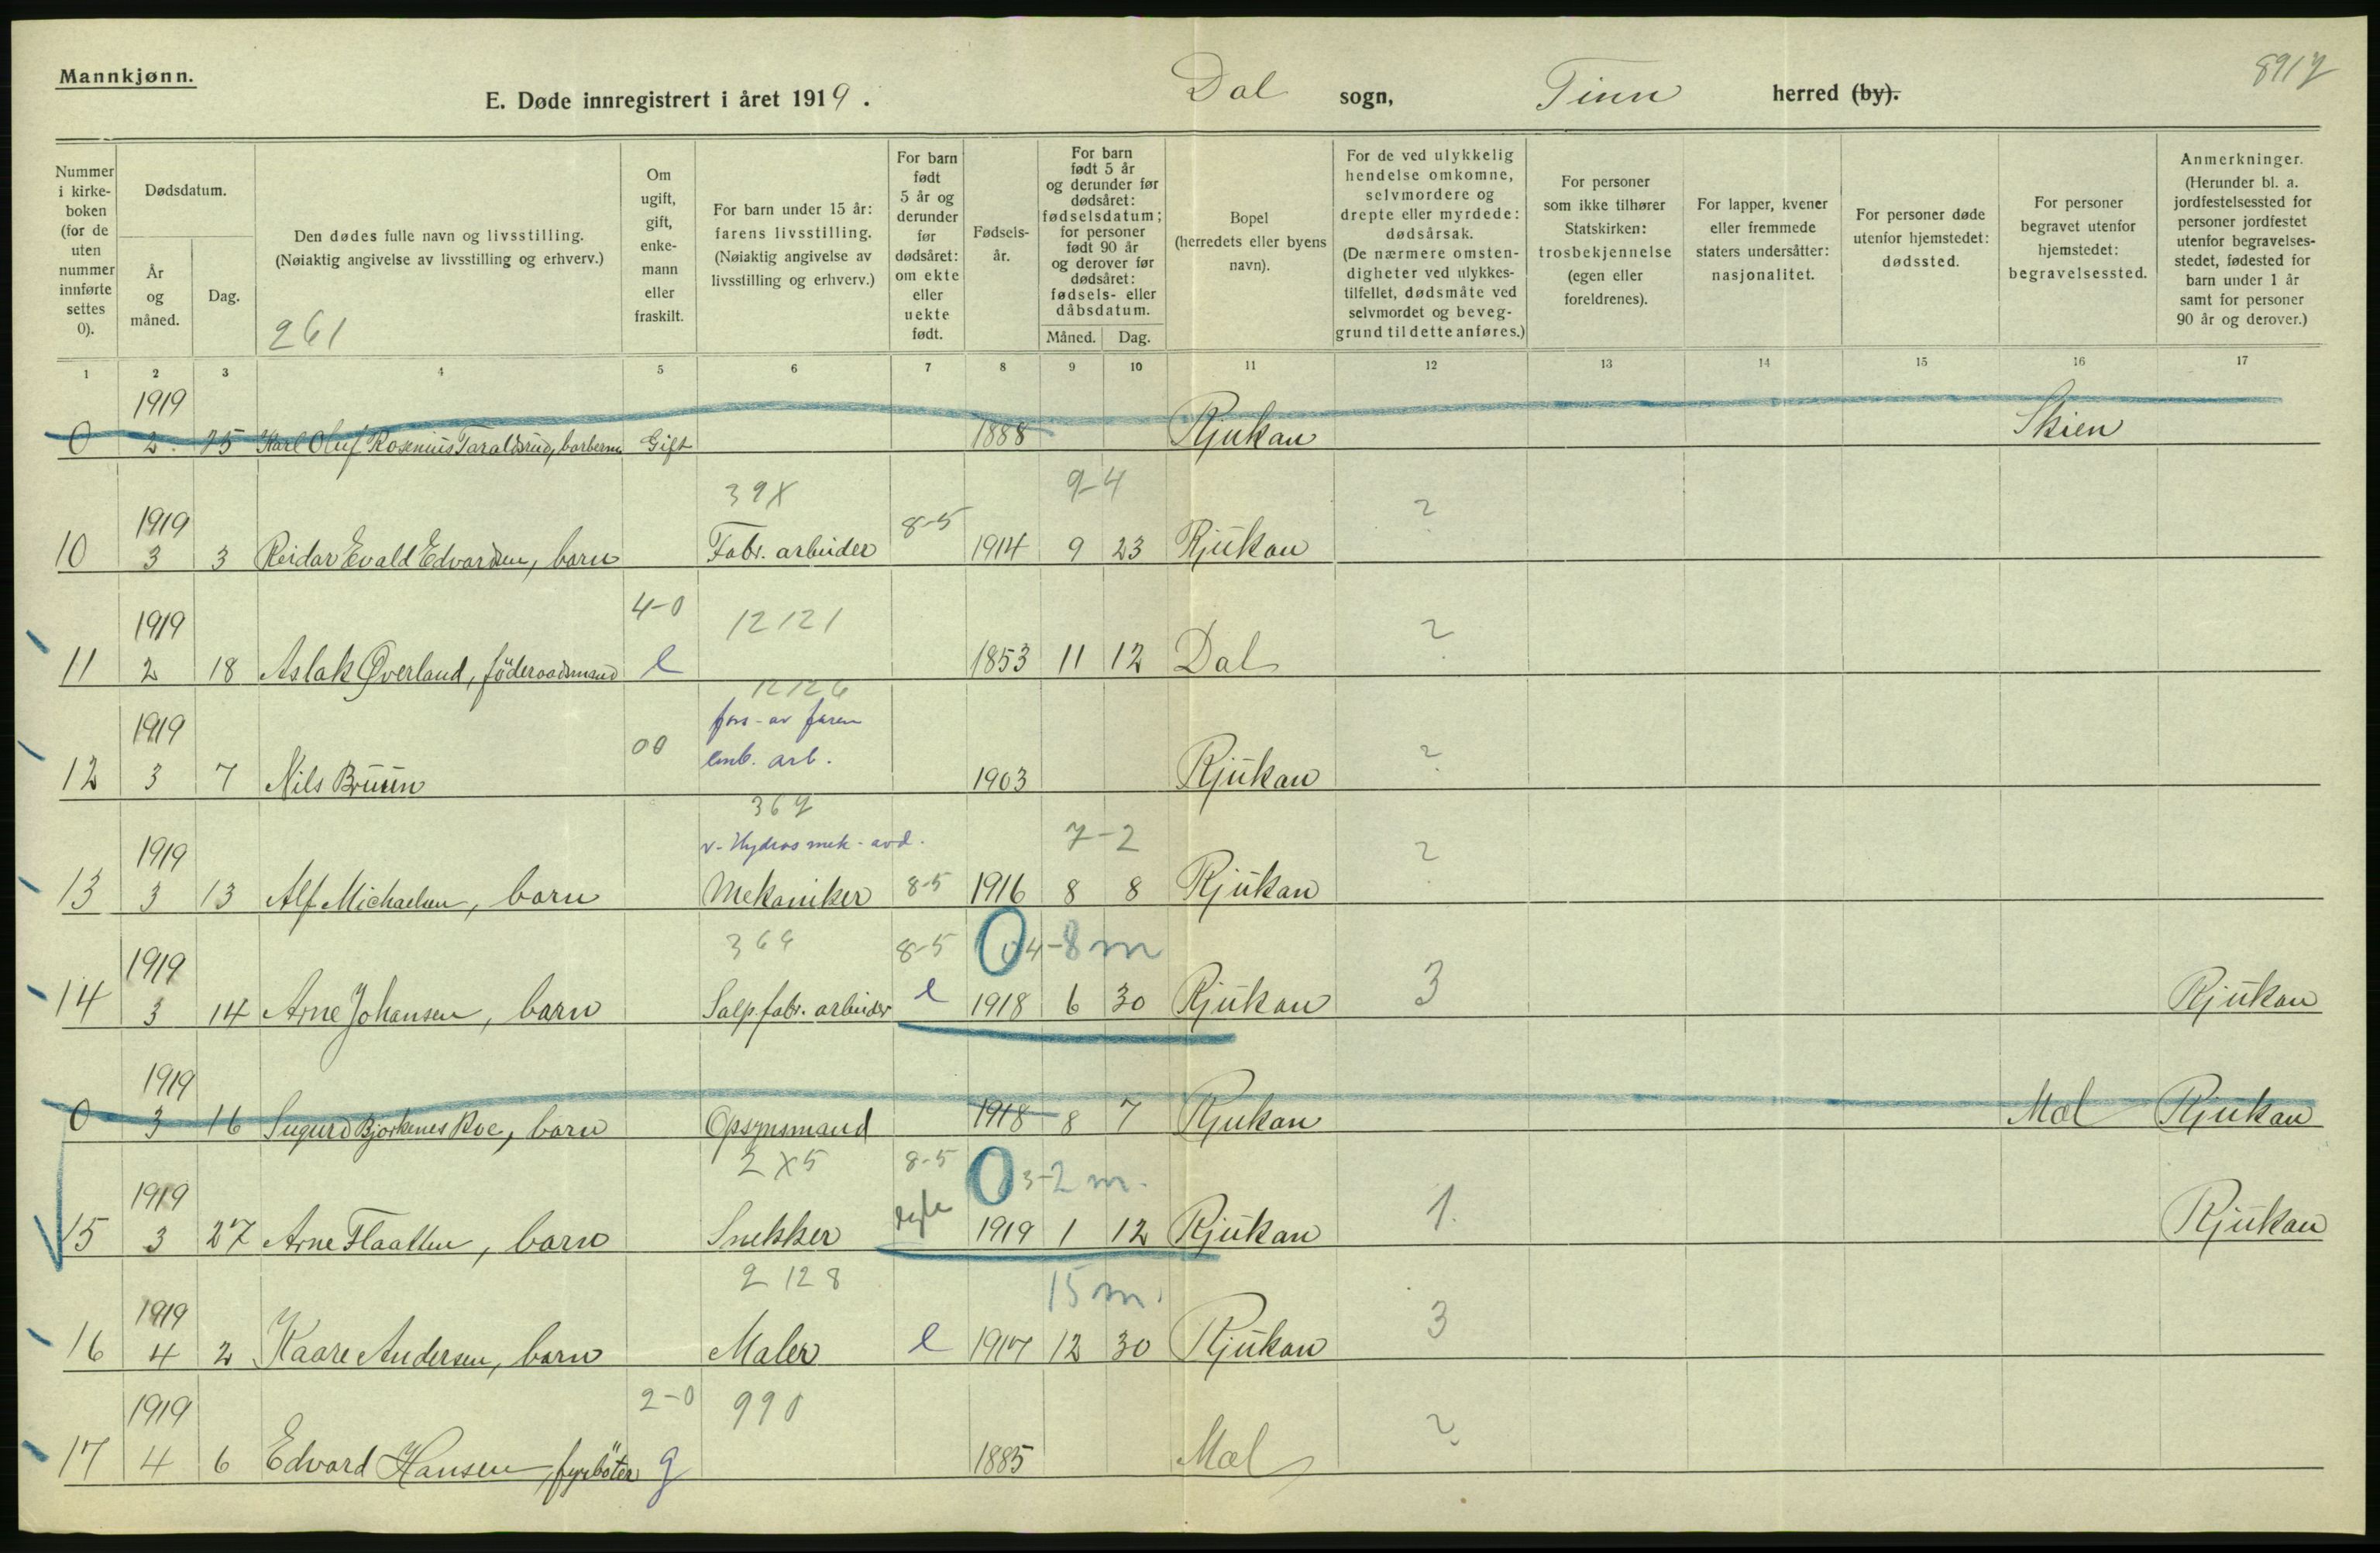 Mannkjønn.
8917
E. Døde innregistrert i året 1919. Dal sogn, Tinn herred (by).
Nummer i kirke-boken (for de uten nummer innførte settes 0).
Dødsdatum.
År og måned.
Dag.
Den dødes fulle navn og livsstilling.
(Nøiaktig angivelse av livsstilling og erhverv.)
261
Om ugift, gift, enke-mann eller fraskilt.
For barn under 15 år: farens livsstilling.
(Nøiaktig angivelse av livsstilling og erhverv.)
For barn født 5 år og derunder før dødsåret: om ekte eller uekte født.
Fødsels-år.
For barn født 5 år og derunder før dødsåret: fødselsdatum; for personer født 90 år og derover før dødsåret: fødsels- eller dåbsdatum.
Måned. Dag.
Bopel (herredets eller byens navn).
For de ved ulykkelig hendelse omkomne, selvmordere og drepte eller myrdede: dødsårsak.
(De nærmere omsten-digheter ved ulykkes-tilfellet, dødsmåte ved selvmordet og beveg-grund til dette anføres.)
For personer som ikke tilhører Statskirken: trosbekjennelse (egen eller foreldrenes).
For lapper, kvener eller fremmede staters undersåtter: nasjonalitet.
For personer døde utenfor hjemstedet: dødssted.
For personer begravet utenfor hjemstedet: begravelsessted.
Anmerkninger.
(Herunder bl. a. jordfestelsessted for personer jordfestet utenfor begravelses-stedet, fødested for barn under 1 år samt for personer 90 år og derover.)
1 2 3 4 5 6 7 8 9 10 11 12 13 14 15 16 17
1919
0 2 25 Karl Oluf Rosenius Taraldsrud, barberm. Gift 1888 Rjukan Skien
39X 9-4
1919 8-5 ?
10 3 3 Reidar Evald Edvardsen, barn Fabr. arbeider 1914 9 23 Rjukan
4-0 12121
1919 ?
11 2 18 Aslak Øverland, föderaadsmand e 1853 11 12 Dal
12126
1919 fors. av faren
00 emb. arb. ?
12 3 7 Nils Bruun 1903 Rjukan
369
1919 v. Hydros mek. avd. 7-2 ?
13 3 13 Alf Michaelsen, barn Mekaniker 8-5 1916 8 8 Rjukan
369 8-5 0 4-8 m
1919 3
14 3 14 Arne Johansen, barn Salp. fabr. arbeider e 1918 6 30 Rjukan Rjukan
1919
0 3 16 Sugurd Bjorkenes Roe, barn Opsynsmand 1918 8 7 Rjukan Mæl Rjukan
2X5 8-5 0 3-2 m.
1919 1.
15 3 27 Arne Flaatten, barn Snekker 1919 1 12 Rjukan Rjukan
2 128 15 m.
1919 3
16 4 2 Kaare Andersen, barn Maler e 1917 12 30 Rjukan
2-0 990
1919 ?
17 4 6 Edvard Hansen, fyrböter g 1885 Mæl